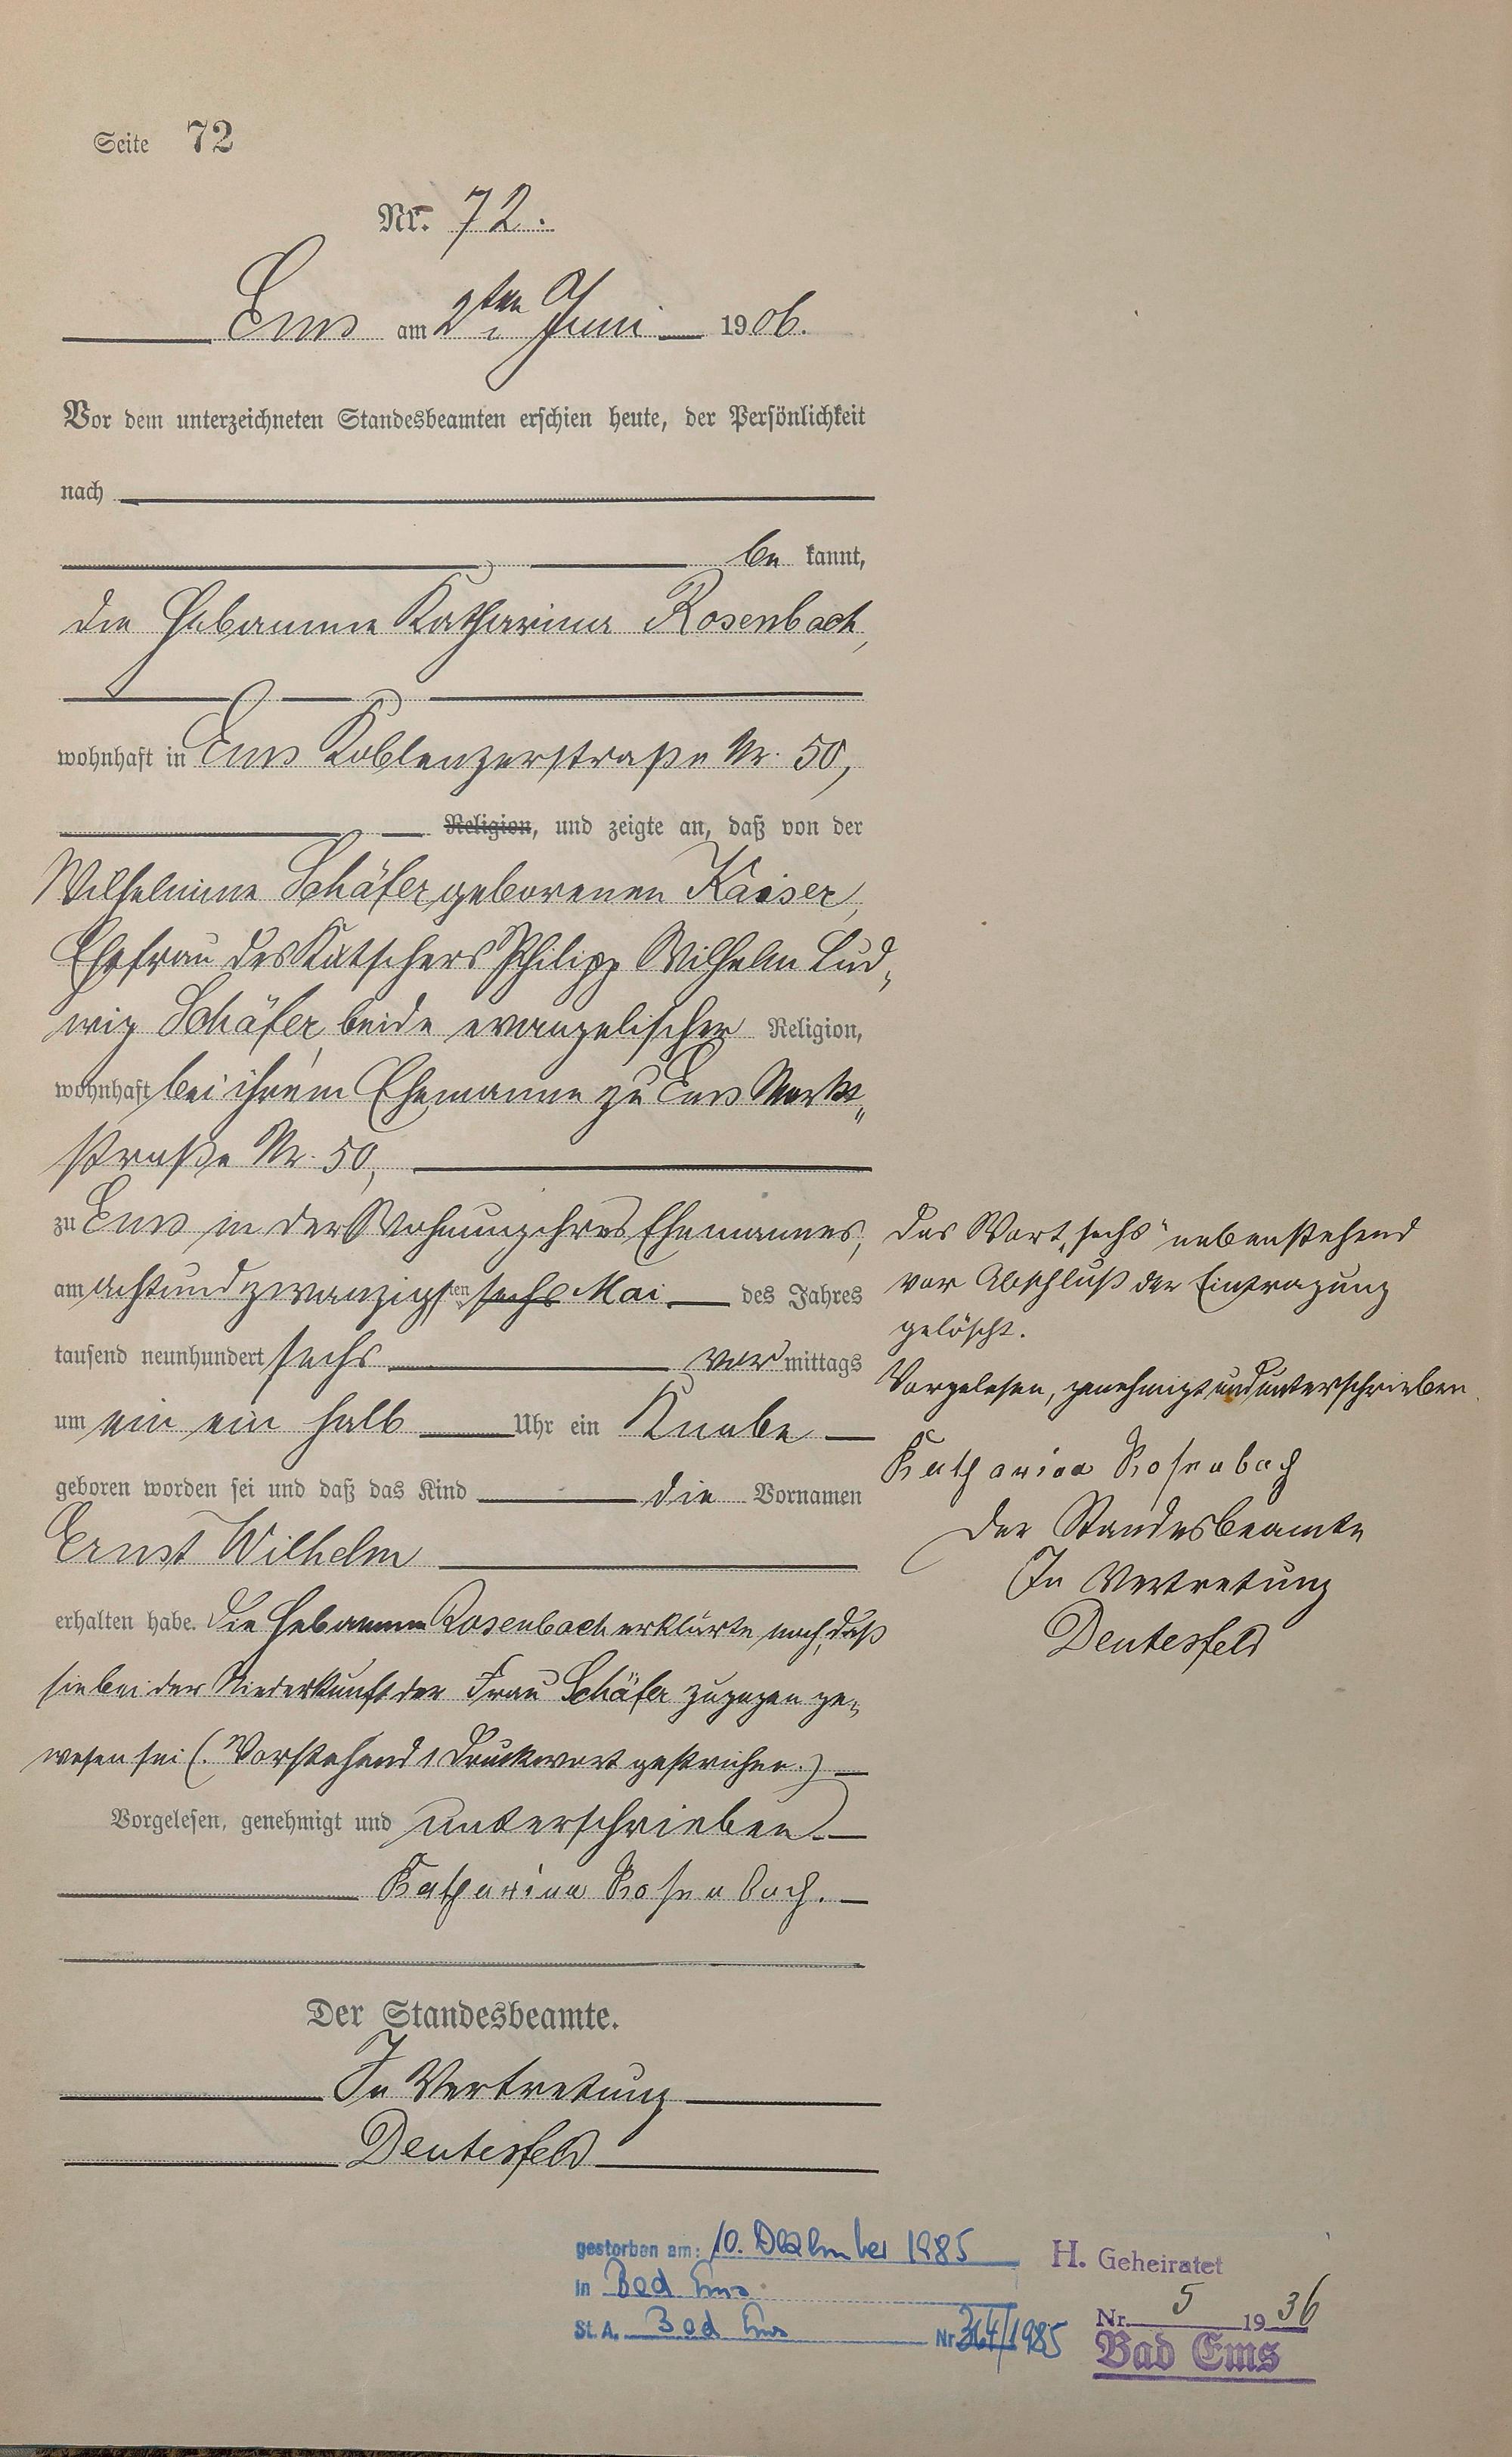 Seite 72
Nr. 72.
Ems am 2ten Juni 1906.
Vor dem unterzeichneten Standesbeamten erschien heute, der Persönlichkeit
nach
be kannt,
die Hebamme Katharina Rosenbach,
wohnhaft in Ems Koblenzerstraße Nr. 50,
Religion, und zeigte an, daß von der
Wilhelmine Schäfer geborenen Kaiser,
Ehefrau des Kutschers Philipp Wilhelm Lud-
wig Schäfer beide evangelischer Religion,
wohnhaft bei ihrem Ehemanne zu Ems Markt-
straße Nr. 50,
zu Ems in der Wohnung ihres Ehemannes,
am achtundzwanzigsten sechs Mai des Jahres
tausend neunhundert sechs vor mittags
um ein ein halb Uhr ein Knabe
geboren worden sei und daß das Kind die Vornamen
Ernst Wilhelm
erhalten habe. Die Hebamme Rosenbach erklärte noch, daß
sie bei der Niederkunft der Frau Schäfer zugegen ge-
wesen sei (. Vorstehend 1 Druckwort gestrichen.)
Vorgelesen, genehmigt und unterschrieben.
Katharina Rosenbach.
Der Standesbeamte.
In Vertretung
Deutesfeld
Das Wort „sechs" nebenstehend
vor Abschluß der Eintragung
gelöscht.
Vorgelesen, genehmigt und unterschrieben.
Katharina Rosenbach
Der Standesbeamte
In Vertretung
Deutesfeld
gestorben am: 10. Dezember 1985
in Bad Ems
St. A. Bad Ems Nr 364/1985
H. Geheiratet
Nr. 5 1936
Bad Ems